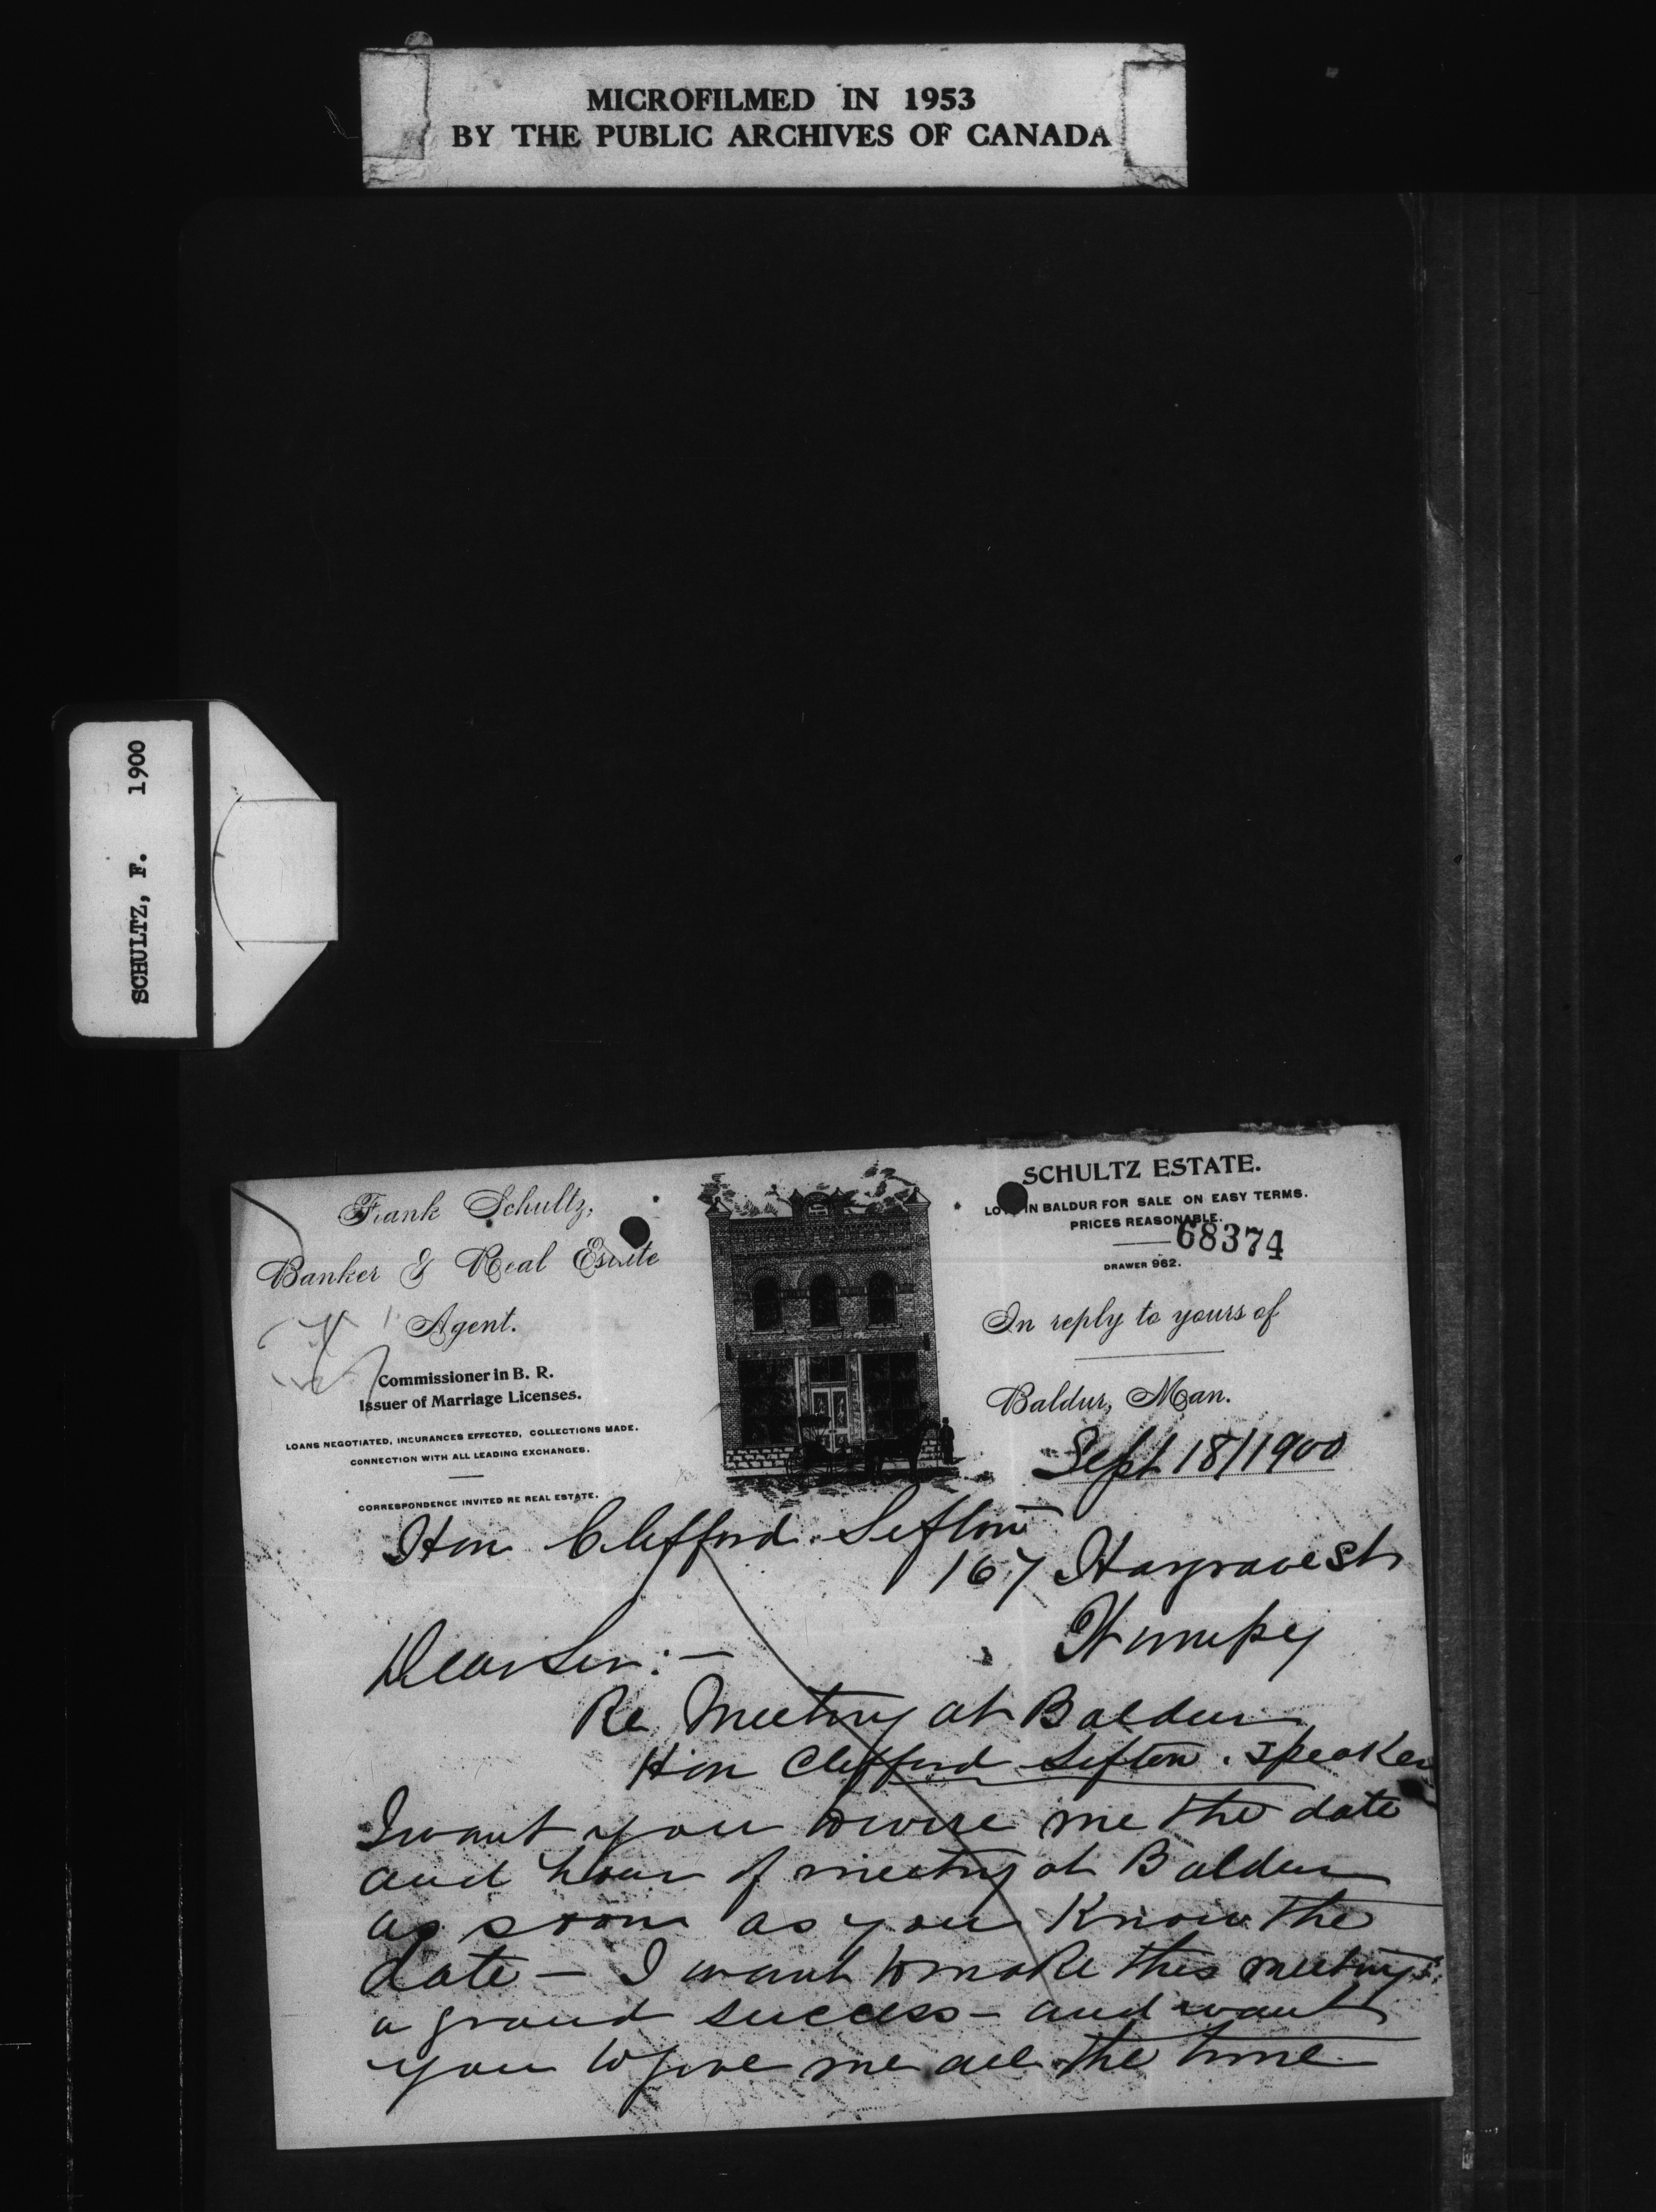 MICROFILMED IN 1953
BY THE PUBLIC ARCHIVES OF CANADA
SCHULTZ, F. 1900
Frank Schultz,
Banker & Real Estate
Agent.
Commissioner in B. R.
Issuer of Marriage Licenses.
LOANS NEGOTIATED, INCURANCES EFFECTED, COLLECTIONS MADE.
CONNECTION WITH ALL LEADING EXCHANGES.
CORRESPONDENCE INVITED RE REAL ESTATE.
SCHULTZ ESTATE.
LOTS IN BALDUR FOR SALE ON EASY TERMS.
PRICES REASONABLE.
68374
DRAWER 962.
In reply to yours of
Baldur, Man.
Sept 18/1900
Hon Clifford Sifton
167 Hargrave St
Winnipeg
Dear Sir:—
Re Meeting at Baldur
Hon Clifford Sifton . Speaker
I want you to wire me the date
and hour of meeting at Baldur
as soon as you Know the
date — I want to make this meeting
a grand success — and want
you to give me all the time